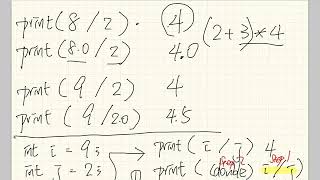 print(8/2). 4 (2+3)*4
print(8.0/2) 4.0
print(9/2) 4
print(9/2.0) 4.5
int i = 9; print(i/j) 4
int j = 2; print((double) i/j)